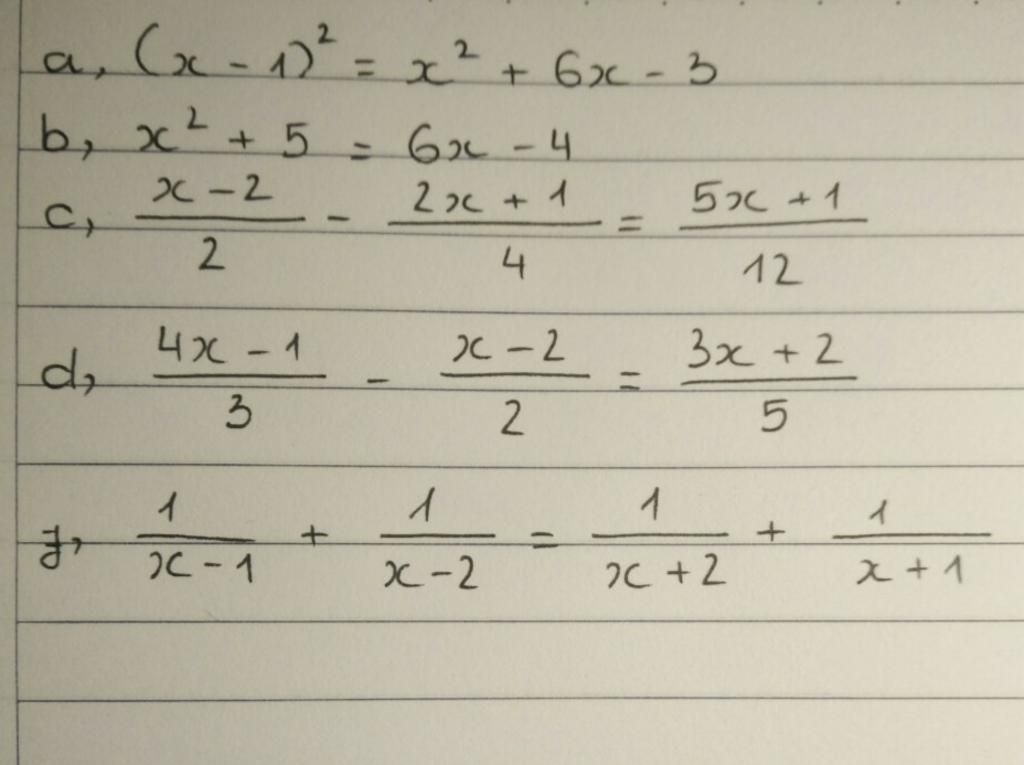 a, (x - 1)² = x² + 6x - 3
b, x² + 5 = 6x - 4
c, \frac{x-2}{2} - \frac{2x+1}{4} = \frac{5x+1}{12}
d, \frac{4x-1}{3} - \frac{x-2}{2} = \frac{3x+2}{5}
f, \frac{1}{x-1} + \frac{1}{x-2} = \frac{1}{x+2} + \frac{1}{x+1}